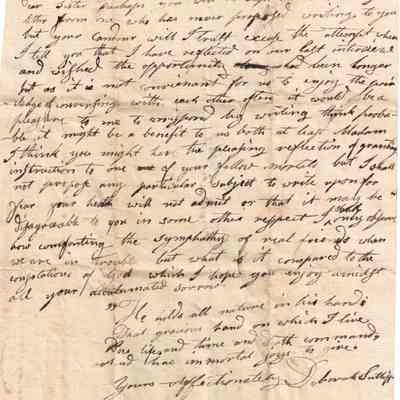 dear Sister perhaps you
letter from me who has never proposed writing to you
but your Candour will I trust excuse the attempt when
I tell you that I have reflected on our last interview
and wished the opportunity had been longer
but as it is not convenient for us to enjoy the priv
iledge of conversing with each other often it would be a
pleasure to me to correspond by writing think proba-
ble it might be a benefit to us both at least Madam
I think you might have the pleasing reflection of granting
instruction to one of your fellow mortals but I shall
not propose any particular subject to write upon for
fear your health will not admit or that it may be
disagreable to you in some other respect I
how comforting the sympathy of real friends when
we are in trouble but what is it compared to the
consolations of God which I hope you enjoy amidst
all your accumulated sorrow
He holds all nature in his hand
That gracious hand on which I live
Does life and time and death command
and has immortal joys to give
Yours affectionately Deborah